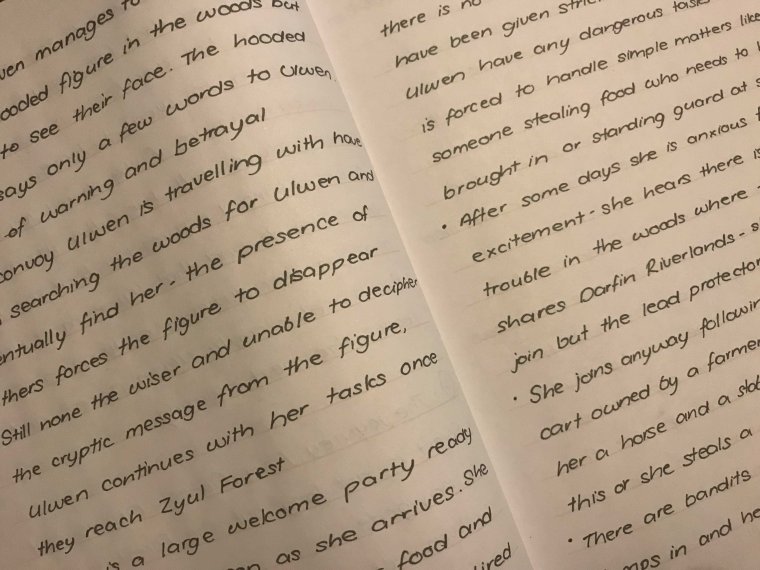 manages to
hooded figure in the woods but
to see their face. The hooded
says only a few words to Ulwen
of warning and betrayal
convoy Ulwen is travelling with have
searching the woods for Ulwen and
find her - the presence of
forces the figure to disappear
Still none the wiser and unable to decipher
the cryptic message from the figure,
Ulwen continues with her tasks once
they reach Zyul Forest
a large welcome party ready
as she arrives. She
food and
there is no
have been given
Ulwen have any dangerous
is forced to handle simple matters like
someone stealing food who needs to
brought in or standing guard at
• After some days she is anxious
excitement - she hears there
trouble in the woods where
shares Darfin Riverlands -
join but the lead protector
• She joins anyway
cart owned by a farmer
her a horse and a
this or she steals a
• There are bandits
in and